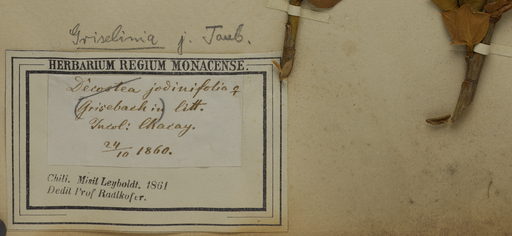 Griselinia j. Taub.
HERBARIUM REGIUM MONACENSE.
Decostea jodinifolia ♀
(Grisebach in) litt.
Incol: Chacay.
24/10 1860.
Chili. Misit Leyboldt. 1861
Dedit Prof Radlkofer.